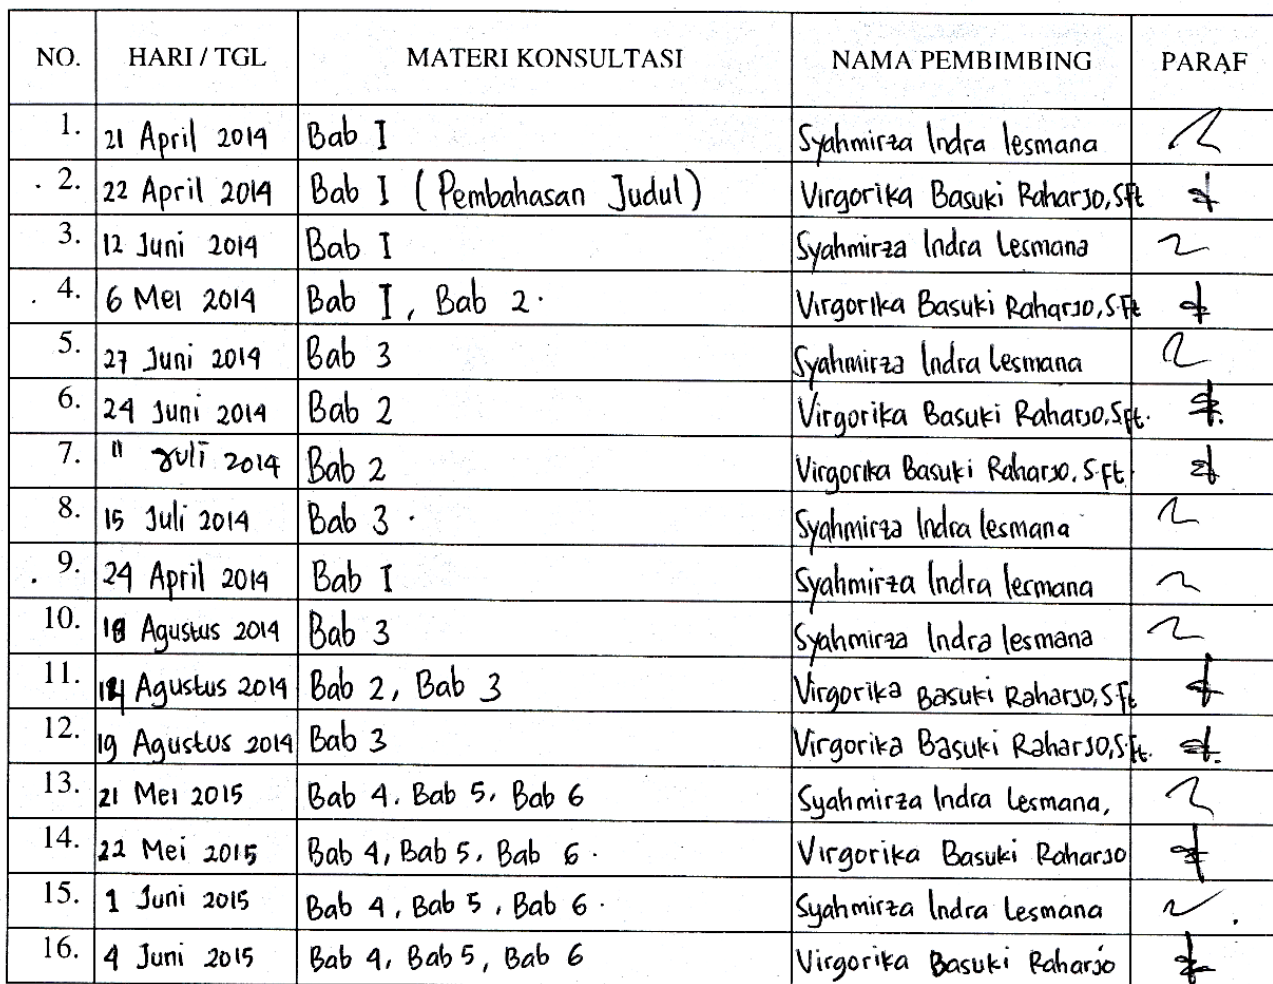 NO. HARI / TGL MATERI KONSULTASI NAMA PEMBIMBING PARAF
1. 21 April 2014 Bab I Syahmirza Indra lesmana
2. 22 April 2014 Bab I (Pembahasan Judul) Virgorika Basuki Raharjo, Sft
3. 12 Juni 2014 Bab I Syahmirza Indra Lesmana
4. 6 Mei 2014 Bab I, Bab 2. Virgorika Basuki Raharjo, S.Ft
5. 27 Juni 2014 Bab 3 Syahmirza Indra Lesmana
6. 24 Juni 2014 Bab 2 Virgorika Basuki Raharjo, Sft.
7. 11 Juli 2014 Bab 2 Virgorika Basuki Raharjo, S.Ft
8. 15 Juli 2014 Bab 3. Syahmirza Indra lesmana
9. 24 April 2014 Bab I Syahmirza Indra lesmana
10. Agustus 2014 Bab 3 Syahmirza Indra lesmana
11. Agustus 2014 Bab 2, Bab 3 Virgorika Basuki Raharjo, S.Ft
12. 19 Agustus 2014 Bab 3 Virgorika Basuki Raharjo, S.Ft.
13. 21 Mei 2015 Bab 4, Bab 5, Bab 6 Syahmirza Indra Lesmana,
14. 22 Mei 2015 Bab 4, Bab 5, Bab 6. Virgorika Basuki Raharjo
15. 1 Juni 2015 Bab 4, Bab 5, Bab 6. Syahmirza Indra Lesmana
16. 4 Juni 2015 Bab 4, Bab 5, Bab 6 Virgorika Basuki Raharjo